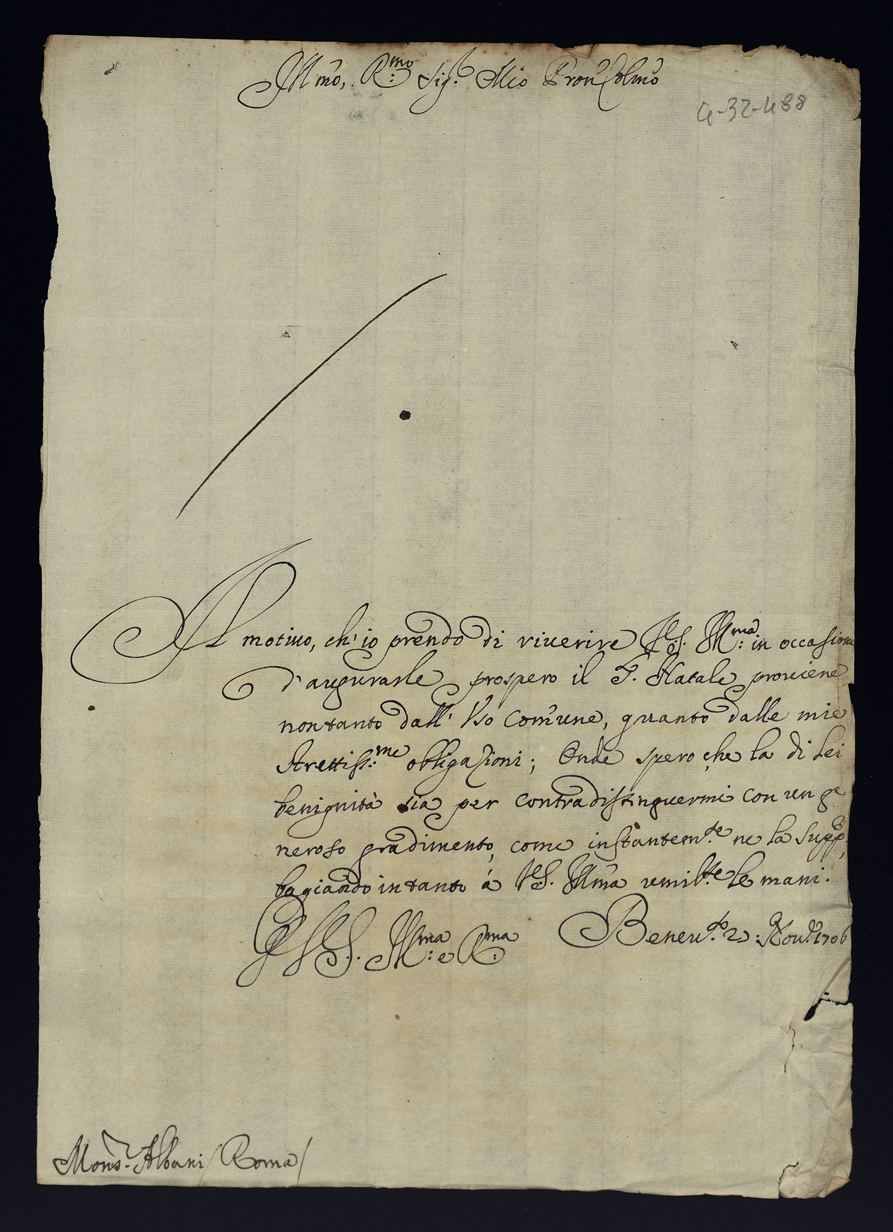 Illmo, Rmo Sig.r Mio Pron Colmo
4-32-488
Il motiuo, ch'io prendo di riuerire V.S. Ill:ma in occasione
d'augurarle prospero il S. Natale prouiene
non tanto dall' Vso Comune, quanto dalle mie
strettiss:me obligazioni; Onde spero, che la di Lei
benignità sia per contradistinguermi con un ge
neroso gradimento, come instantem.te ne la supp.
bagiando intanto á V.S. Illma umil.te le mani.
Di V.S. Ill:ma e R:ma Beneu.to 2 : Nou.e 1706
Mons.r Albani / Roma /